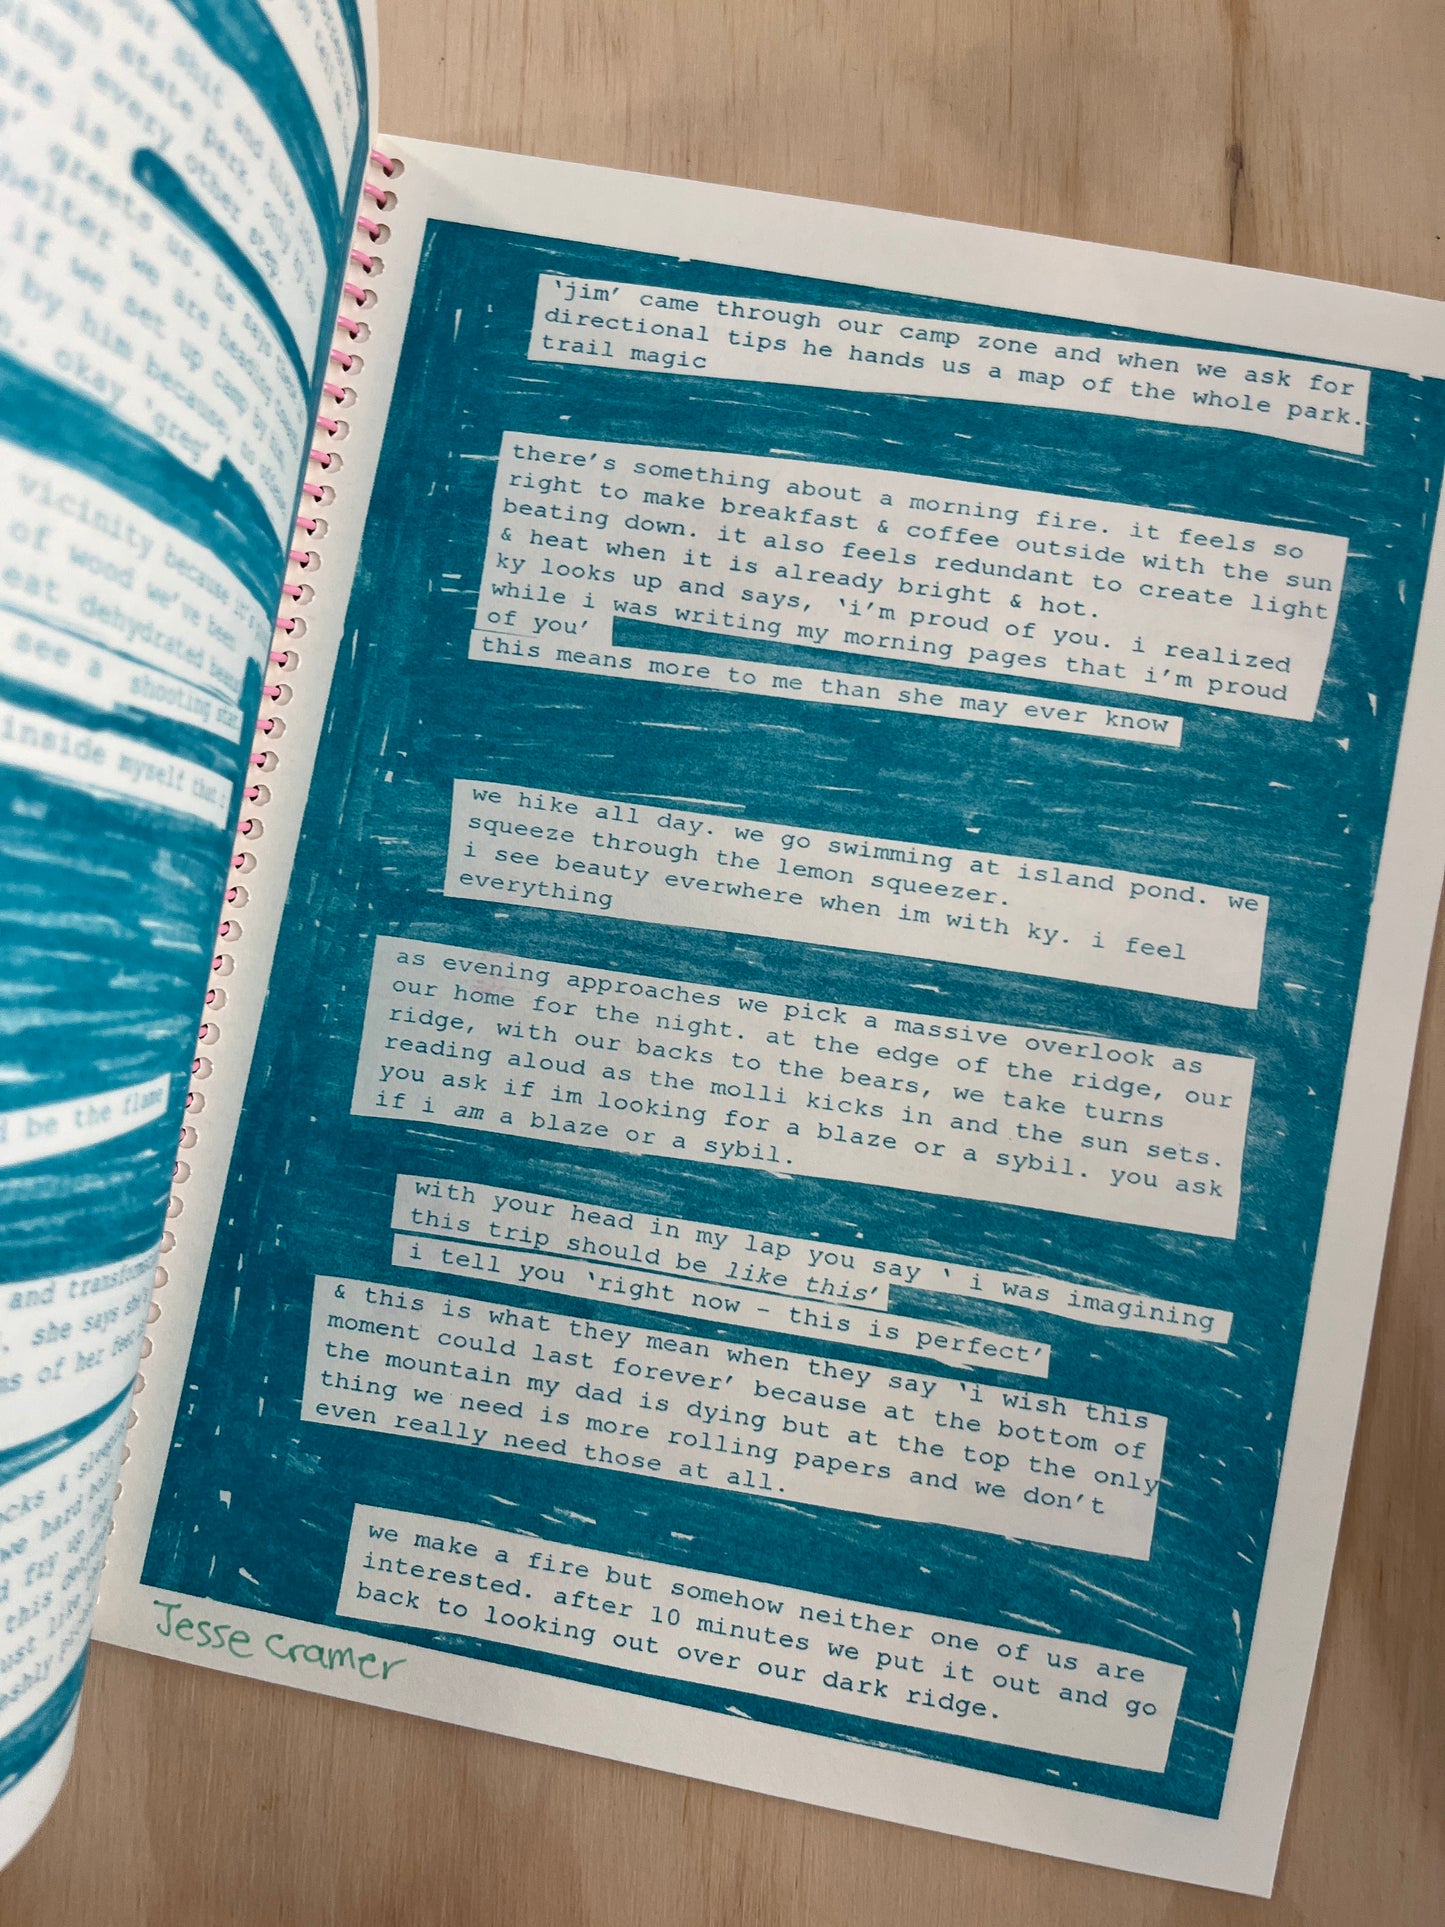 shit and hike
state park. only
every other step.
greets us. he says
shelter we are heading
if we set up camp by him
by him because,
okay 'greg'
vicinity because
of wood we've been
eat dehydrated
see a shooting star
inside myself that
be the flame
and
she says
of her feet
‘jim’ came through our camp zone and when we ask for
directional tips he hands us a map of the whole park.
trail magic
there’s something about a morning fire. it feels so
right to make breakfast & coffee outside with the sun
beating down. it also feels redundant to create light
& heat when it is already bright & hot.
ky looks up and says, ‘i’m proud of you. i realized
while i was writing my morning pages that i’m proud
of you’
this means more to me than she may ever know
we hike all day. we go swimming at island pond. we
squeeze through the lemon squeezer.
i see beauty everwhere when im with ky. i feel
everything
as evening approaches we pick a massive overlook as
our home for the night. at the edge of the ridge, our
ridge, with our backs to the bears, we take turns
reading aloud as the molli kicks in and the sun sets.
you ask if im looking for a blaze or a sybil. you ask
if i am a blaze or a sybil.
with your head in my lap you say ‘ i was imagining
this trip should be like this’
i tell you ‘right now – this is perfect’
& this is what they mean when they say ‘i wish this
moment could last forever’ because at the bottom of
the mountain my dad is dying but at the top the only
thing we need is more rolling papers and we don’t
even really need those at all.
we make a fire but somehow neither one of us are
interested. after 10 minutes we put it out and go
back to looking out over our dark ridge.
Jesse Cramer